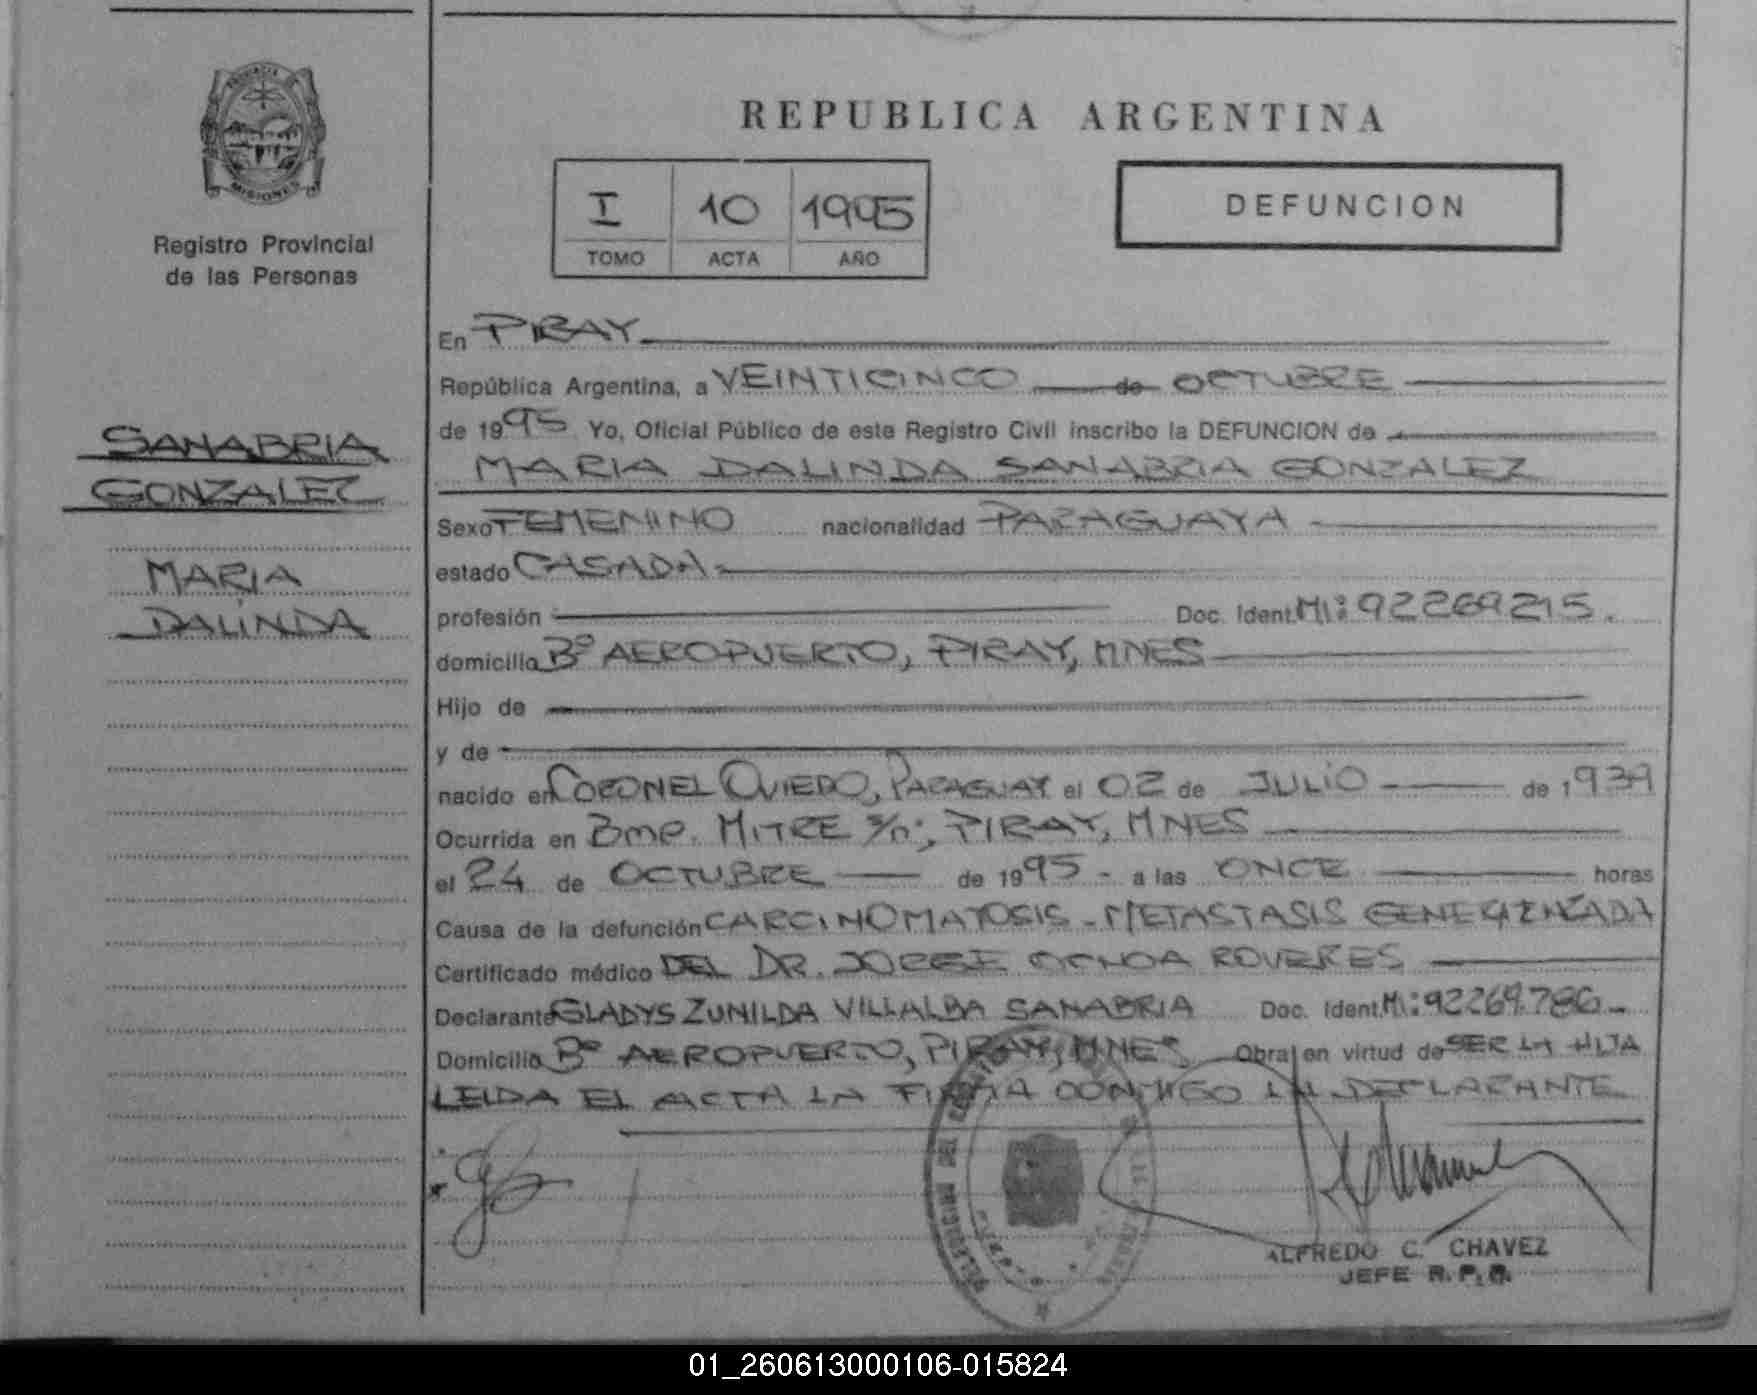 PROVINCIA DE
MISIONES
Registro Provincial
de las Personas
SANABRIA
GONZALEZ
MARIA
DALINDA
REPUBLICA ARGENTINA
I 10 1995
TOMO ACTA AÑO
DEFUNCION
En PIRAY
República Argentina, a VEINTICINCO de OCTUBRE
de 1995 Yo, Oficial Público de este Registro Civil inscribo la DEFUNCION de
MARIA DALINDA SANABRIA GONZALEZ
Sexo FEMENINO nacionalidad PARAGUAYA
estado CASADA
profesión Doc. Ident. MI: 92269215.
domicilio Bº AEROPUERTO, PIRAY, MNES
Hijo de
y de
nacido en CORONEL OVIEDO, PARAGUAY el 02 de JULIO de 1939
Ocurrida en Bmé. MITRE S/n:, PIRAY, MNES
el 24 de OCTUBRE de 1995 - a las ONCE horas
Causa de la defunción CARCINOMATOSIS - METASTASIS GENERALIZADA
Certificado médico DEL DR. JORGE OCHOA ROVERES
Declarante GLADYS ZUNILDA VILLALBA SANABRIA Doc. Ident. MI: 92269.786
Domicilio Bº AEROPUERTO, PIRAY, MNES Obra en virtud de SER LA HIJA
LEIDA EL ACTA LA FIRMA CONMIGO LA DECLARANTE
ALFREDO C. CHAVEZ
JEFE R.P.P.
01_260613000106-015824